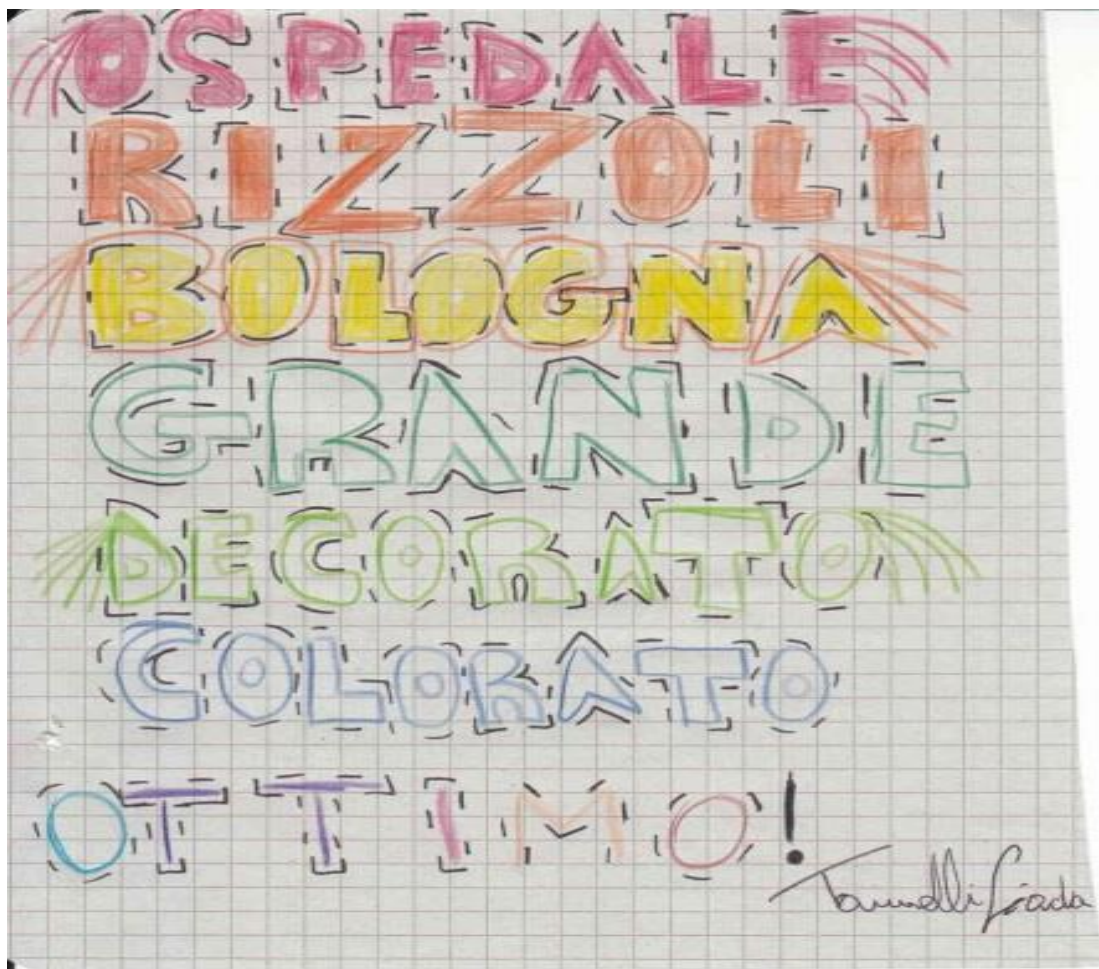 OSPEDALE
RIZZOLI
BOLOGNA
GRANDE
DECORATO
COLORATO
OTTIMO!
Giada